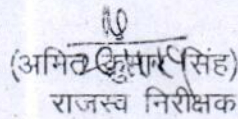 (अमित कुमार सिंह)
राजस्व निरीक्षक